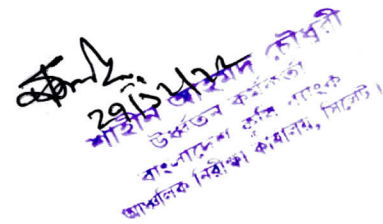 শাহীন আহমদ চৌধুরী
উর্ধ্বতন কর্মকর্তা
বাংলাদেশ কৃষি ব্যাংক
আঞ্চলিক নিরীক্ষা কার্যালয়, সিলেট।